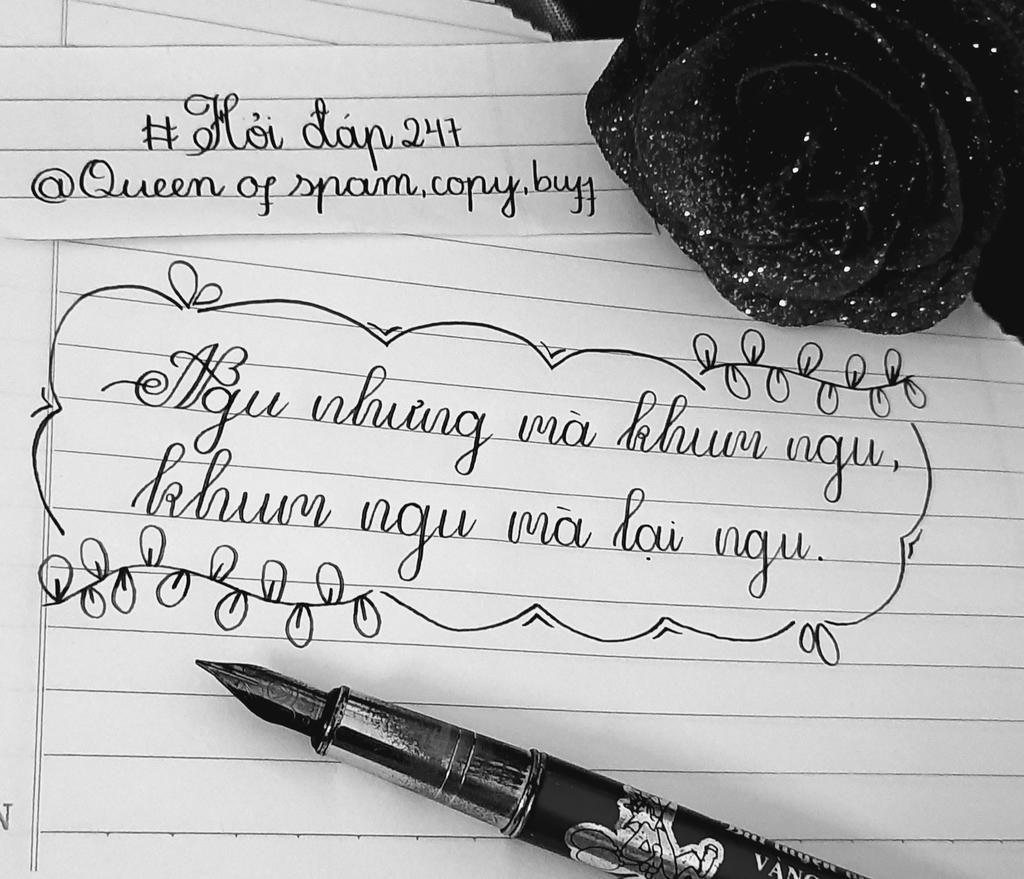 # Hỏi đáp 247
@Queen of spam, copy, buff
Ngu nhưng mà khum ngu,
khum ngu mà lại ngu.
VÀNG